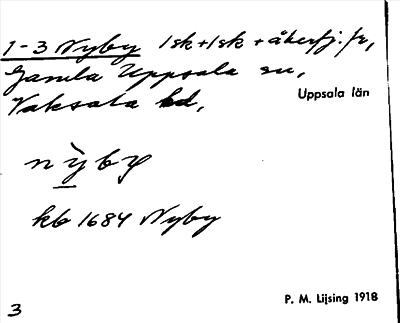 1-3 Nyby 1sk+1sk+åkerfj. fr,
Gamla Uppsala sn,
Vaksala hd,
Uppsala län
nỳby
kb 1684 Nyby
P. M. Lijsing 1918
3